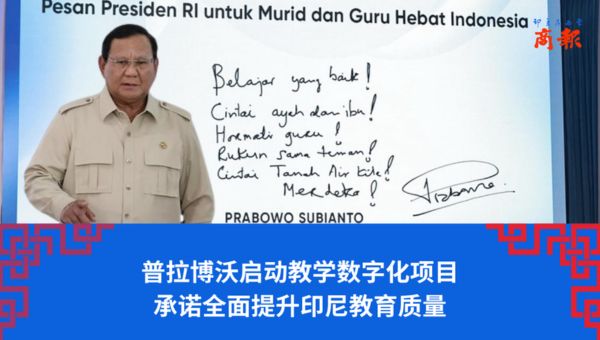 Pesan Presiden RI untuk Murid dan Guru Hebat Indonesia
印尼商報
Belajar yang baik!
Cintai ayah dan ibu!
Hormati guru!
Rukun sama teman!
Cintai Tanah Air kita!
Merdeka!
PRABOWO SUBIANTO
普拉博沃启动教学数字化项目
承诺全面提升印尼教育质量